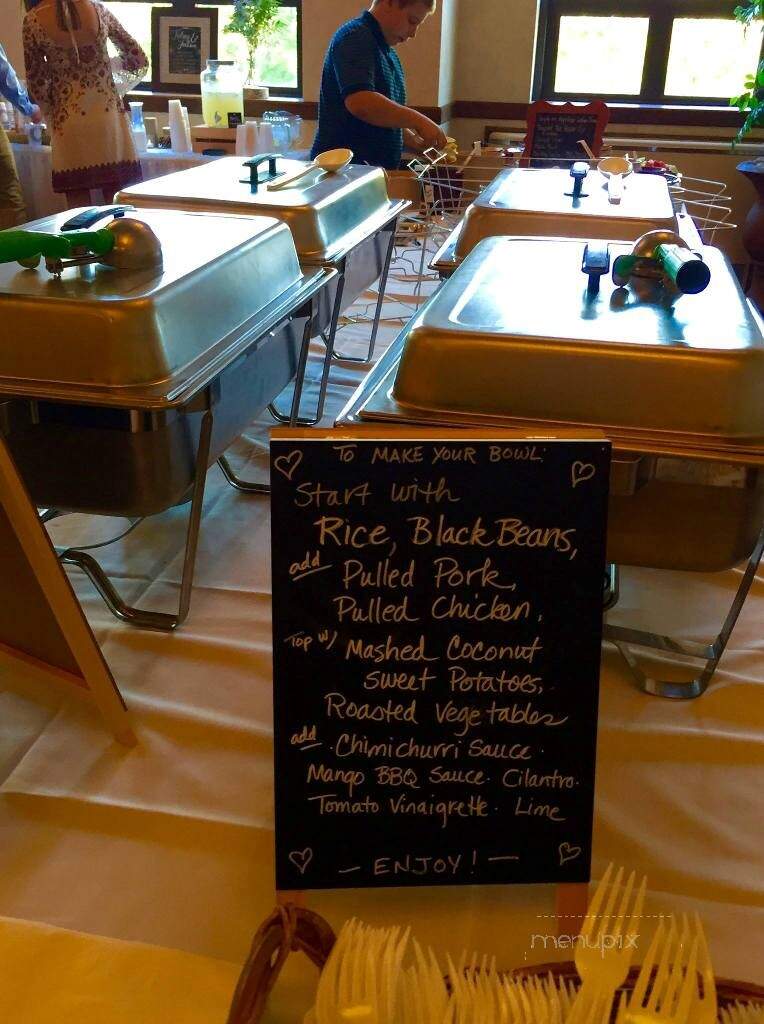 TO MAKE YOUR BOWL:
Start with
Rice, Black Beans,
add Pulled Pork,
Pulled Chicken,
Top w/ Mashed Coconut
Sweet Potatoes,
Roasted Vegetables
add · Chimichurri Sauce ·
Mango BBQ Sauce · Cilantro ·
Tomato Vinaigrette · Lime
— ENJOY! —
menupix